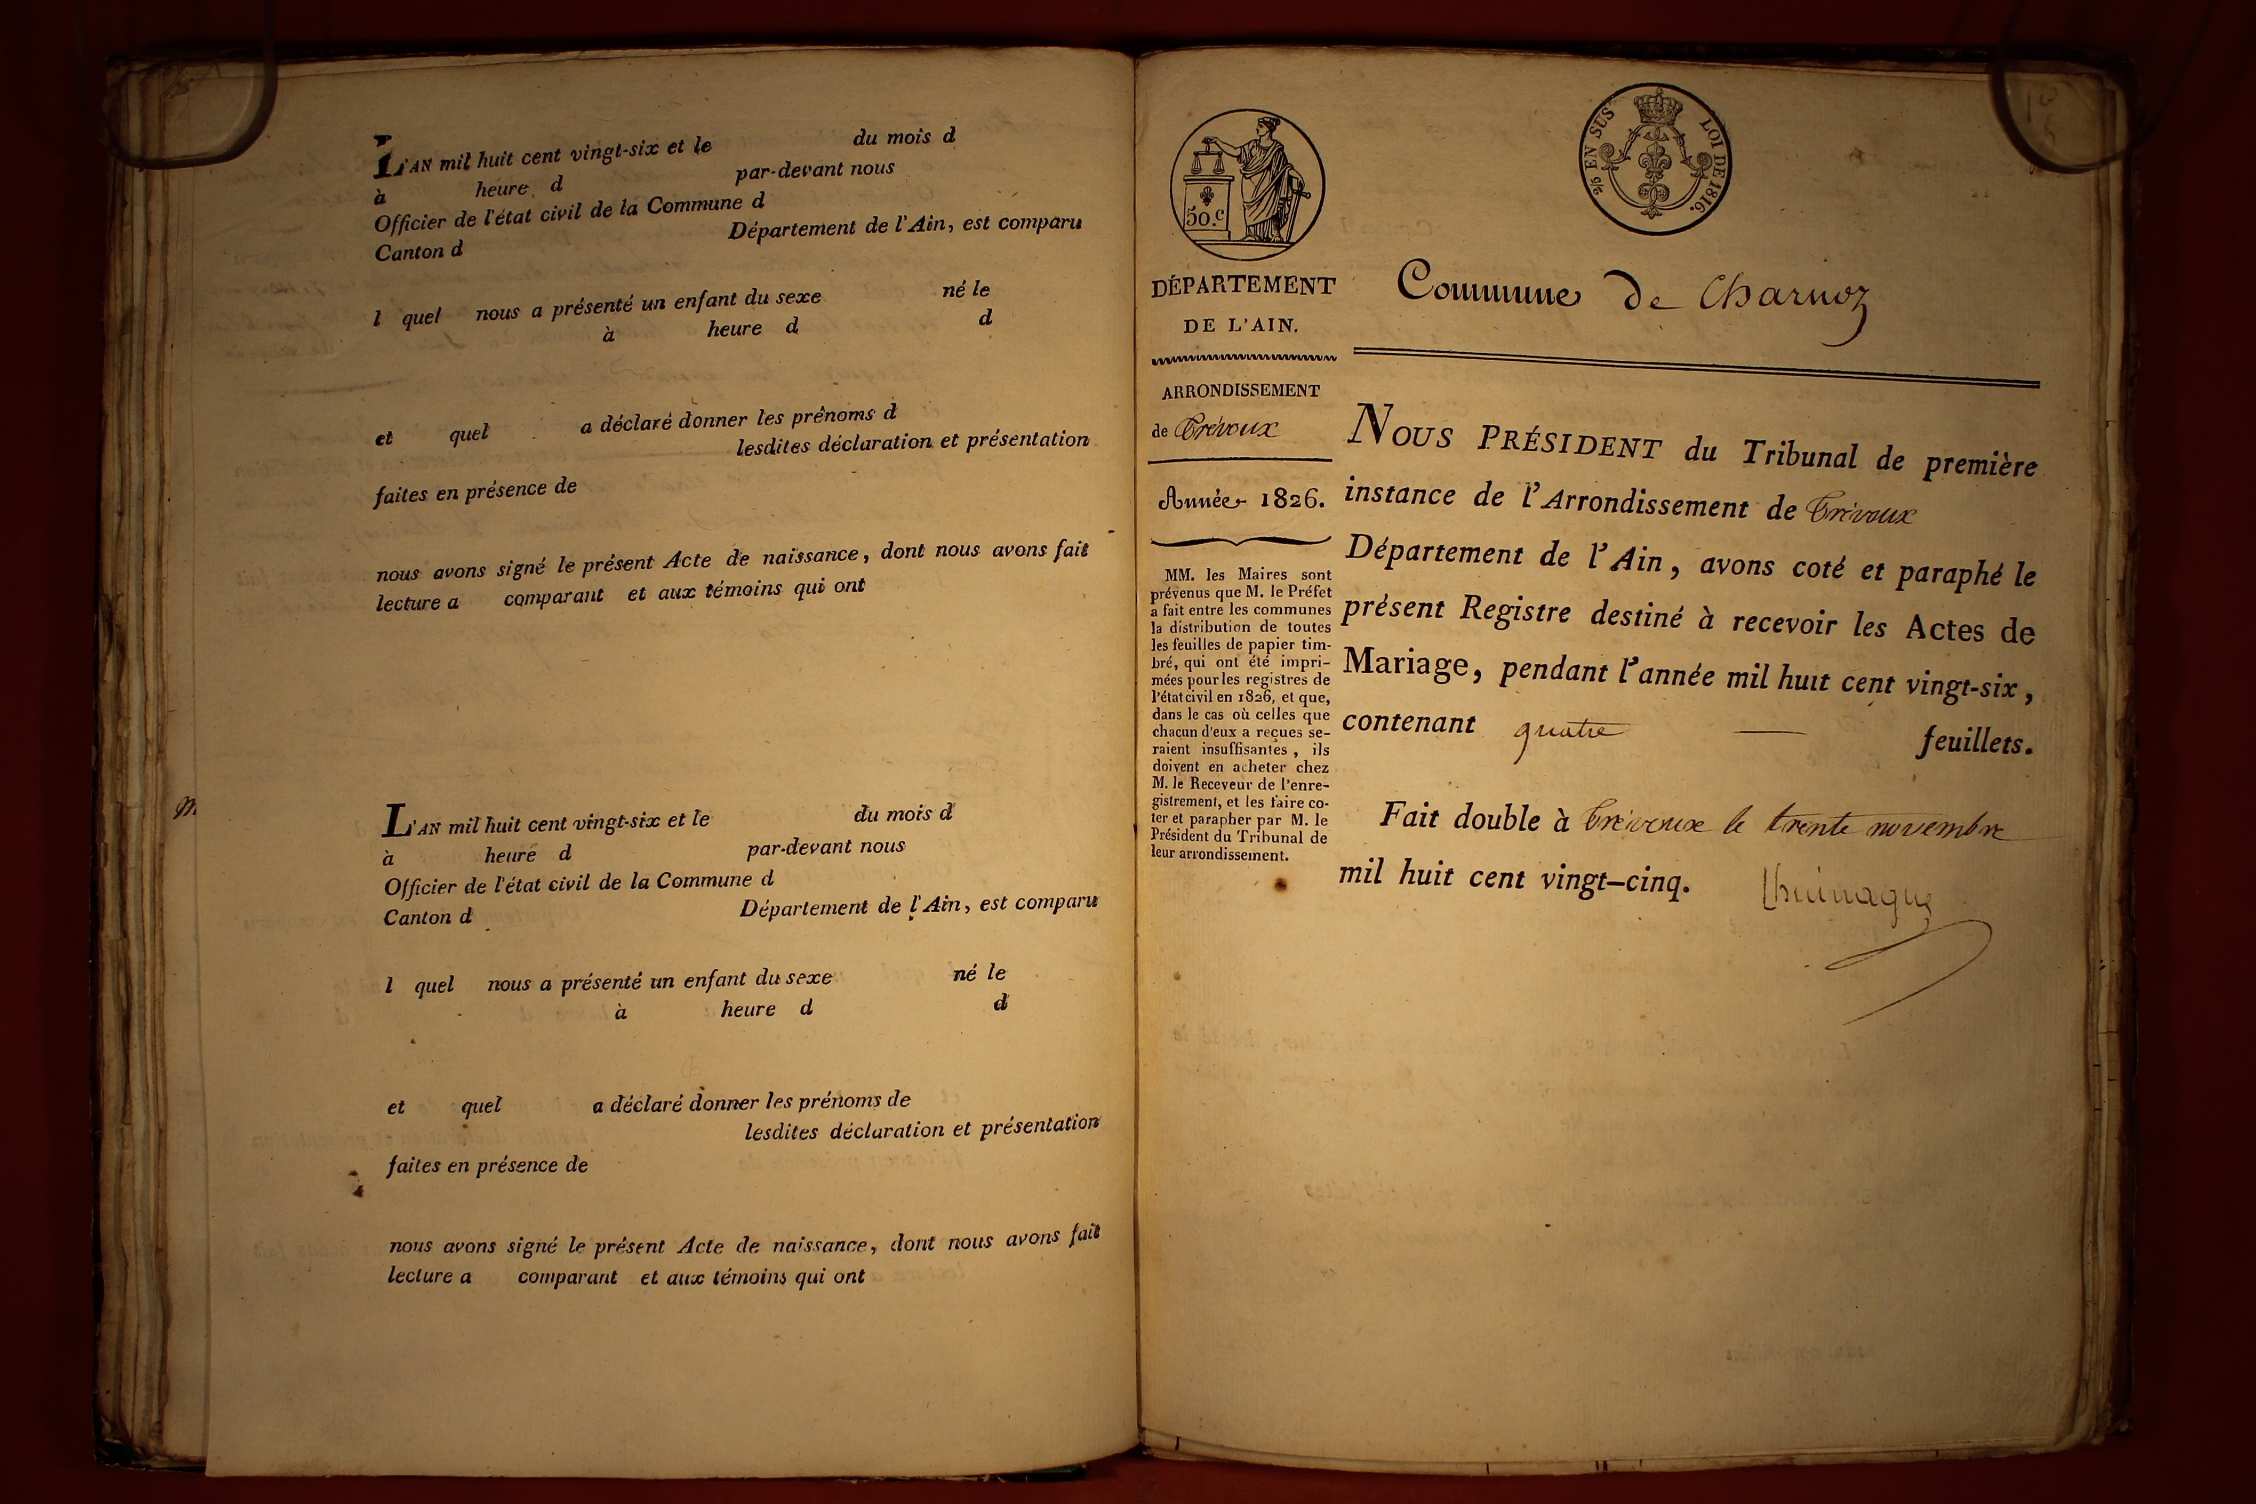 L'AN mil huit cent vingt-six et le du mois d
à heure d par-devant nous
Officier de l'état civil de la Commune d
Canton d Département de l'Ain, est comparu
l quel nous a présenté un enfant du sexe né le
à heure d d
et quel a déclaré donner les prénoms d
lesdites déclaration et présentation
faites en présence de
nous avons signé le présent Acte de naissance, dont nous avons fait
lecture a comparant et aux témoins qui ont
L'AN mil huit cent vingt-six et le du mois d
à heure d par-devant nous
Officier de l'état civil de la Commune d
Canton d Département de l'Ain, est comparu
l quel nous a présenté un enfant du sexe né le
à heure d d
et quel a déclaré donner les prénoms de
lesdites déclaration et présentation
faites en présence de
nous avons signé le présent Acte de naissance, dont nous avons fait
lecture a comparant et aux témoins qui ont
50.c
2/5 EN SUS LOI DE 1816.
DÉPARTEMENT
DE L'AIN.
ARRONDISSEMENT
de Trévoux
Année 1826.
MM. les Maires sont
prévenus que M. le Préfet
a fait entre les communes
la distribution de toutes
les feuilles de papier tim-
bré, qui ont été impri-
mées pour les registres de
l'état civil en 1826, et que,
dans le cas où celles que
chacun d'eux a reçues se-
raient insuffisantes, ils
doivent en acheter chez
M. le Receveur de l'enre-
gistrement, et les faire co-
ter et parapher par M. le
Président du Tribunal de
leur arrondissement.
Commune de Charnoz
NOUS PRÉSIDENT du Tribunal de première
instance de l'Arrondissement de Trévoux
Département de l'Ain, avons coté et paraphé le
présent Registre destiné à recevoir les Actes de
Mariage, pendant l'année mil huit cent vingt-six,
contenant quatre feuillets.
Fait double à Trévoux le trente novembre
mil huit cent vingt-cinq.